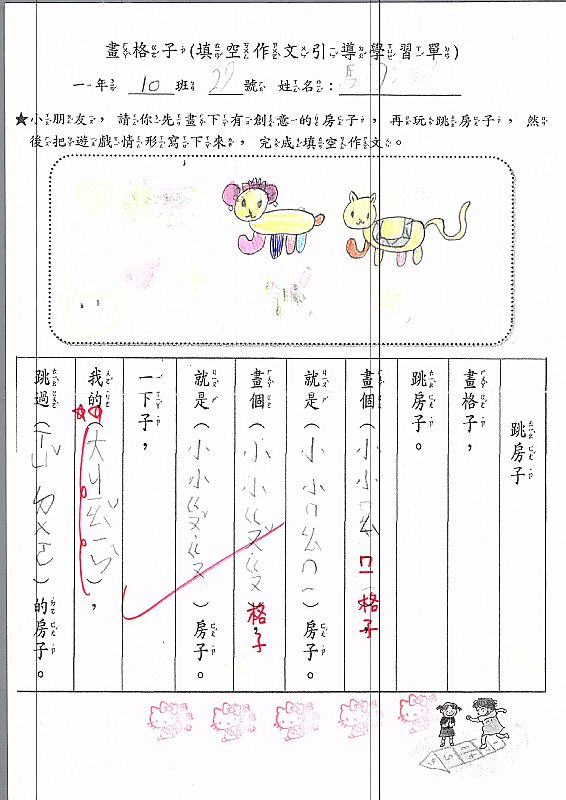 畫格子(填空作文引導學習單)
一年 10 班 29 號 姓名:
★小朋友,請你先畫下有創意的房子,再玩跳房子,然
後把遊戲情形寫下來,完成填空作文。
跳房子
畫格子,
跳房子。
畫個(小小ㄇㄠㄇㄧ格子,
就是(小小ㄇㄠㄇㄧ)房子。
畫個(小小ㄍㄡˇㄍㄡ格子,
就是(小小ㄍㄡˇㄍㄡ)房子。
一下子,
我的(),
跳過()的房子。